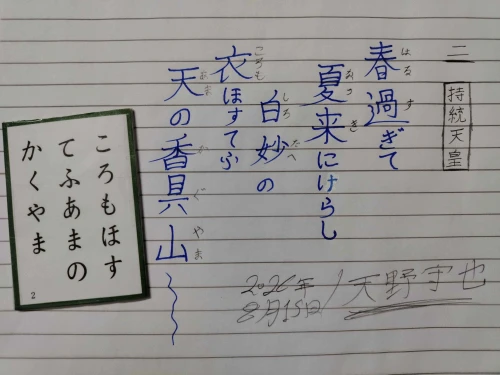 二
持統天皇
はる す
春過ぎて
なつ き
夏来にけらし
しろ たへ
白妙の
ころも
衣ほすてふ
あま か ぐ やま
天の香具山
2026年
8月15日
ころもほす
てふあまの
かくやま
2